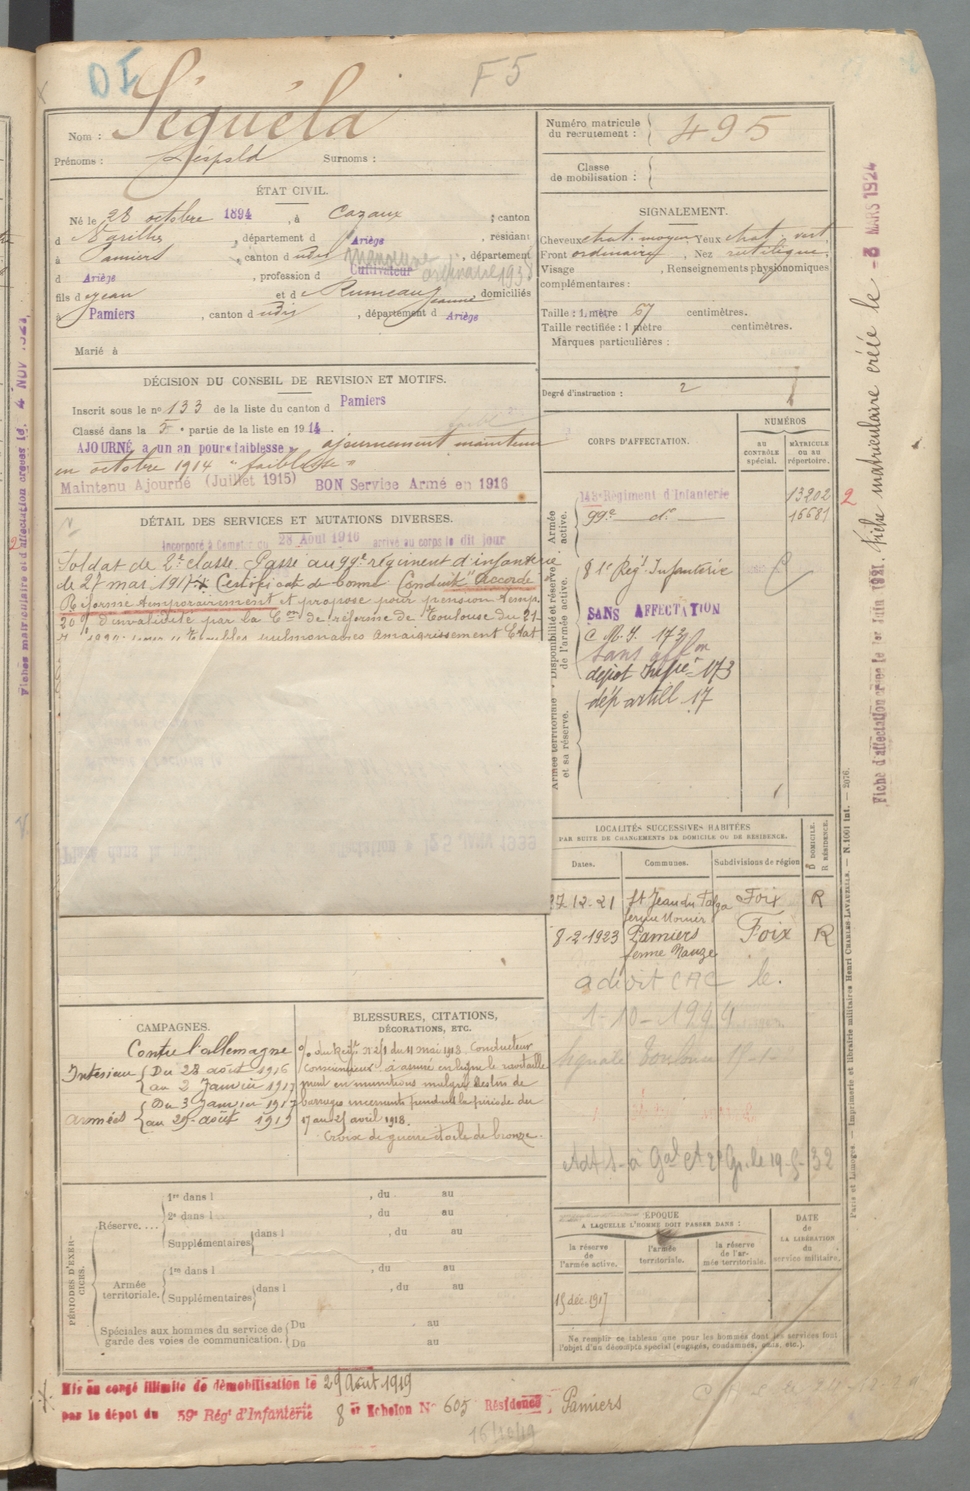 DI
F5
Nom : Séguéla
Prénoms : Léopold Surnoms :
Numéro matricule du recrutement : 495
Classe de mobilisation :
ÉTAT CIVIL.
Né le 28 octobre 1894, à Cazaux, canton
d Varilhes, département d Ariège, résidant
à Pamiers, canton d udit, département
d Ariège, profession d Cultivateur
fils d Jean et d Rumeau Jeanne, domiciliés
à Pamiers, canton d udit, département d Ariège
Marié à
SIGNALEMENT.
Cheveux chat. moyen Yeux chat. vert
Front ordinaire, Nez rectiligne
Visage , Renseignements physionomiques
complémentaires :
Taille : 1 mètre 67 centimètres.
Taille rectifiée : 1 mètre centimètres.
Marques particulières :
Degré d'instruction : 2
DÉCISION DU CONSEIL DE REVISION ET MOTIFS.
Inscrit sous le no 133 de la liste du canton d Pamiers
Classé dans la 5e partie de la liste en 1914
AJOURNÉ a un an pour «faiblesse» ajournement maintenu
en octobre 1914 "faiblesse"
Maintenu Ajourné (Juillet 1915) BON Service Armé en 1916
DÉTAIL DES SERVICES ET MUTATIONS DIVERSES.
Incorporé à compter du 28 Août 1916 arrivé au corps le dit jour
Soldat de 2e classe. Passé au 99e régiment d'infanterie
le 27 mai 1917. Certificat de bonne Conduite "Accordé"
Réformé temporairement et proposé pour pension temp.
20 % d'invalidité par la Con de réforme de Toulouse du 21
troubles pulmonaires amaigrissement Etat
CORPS D'AFFECTATION.
NUMÉROS
AU CONTRÔLE spécial.
MATRICULE OU AU répertoire.
Armée active.
143e Régiment d'Infanterie 13202
99e do 16681
Disponibilité et réserve de l'armée active.
81e Régt Infanterie
SANS AFFECTATION
C. M. I. 173
Sans affon
dépôt Infie 173
dép artill 17
Armée territoriale et sa réserve.
LOCALITÉS SUCCESSIVES HABITÉES
PAR SUITE DE CHANGEMENTS DE DOMICILE OU DE RÉSIDENCE.
Dates. Communes. Subdivisions de région
D DOMICILE. R RÉSIDENCE.
27-12-21 St Jean du Falga Foix R
8-2-1923 Pamiers Foix R
ferme Nauze
a droit CAC le.
1-10-1944
CAMPAGNES.
Contre l'allemagne
Intérieur { Du 28 août 1916
au 2 Janvier 1917
armées { Du 3 Janvier 1917
au 29 août 1919
BLESSURES, CITATIONS,
DÉCORATIONS, ETC.
o/o du Régt n° 241 du 11 mai 1918. Conducteur
Consciencieux a assuré en ligne le ravitaille
ment en munitions malgré des tirs de
barrages incessants pendant la période du
17 au 25 avril 1918.
Croix de guerre étoile de bronze.
PÉRIODES D'EXERCICES.
Réserve....
1re dans l , du au
2e dans l , du au
Supplémentaires dans l , du au
Armée territoriale.
1re dans l , du au
Supplémentaires dans l , du au
Spéciales aux hommes du service de garde des voies de communication.
Du au
Du au
ÉPOQUE
A LAQUELLE L'HOMME DOIT PASSER DANS :
la réserve de l'armée active.
l'armée territoriale.
la réserve de l'armée territoriale.
DATE de LA LIBÉRATION du service militaire.
15 déc. 1917
Ne remplir ce tableau que pour les hommes dont les services font
l'objet d'un décompte spécial (engagés, condamnés, omis, etc.).
Mis en congé illimité de démobilisation le 29 Août 1919
par le dépôt du 59e Régt d'Infanterie 8e Echelon No 605 Résidence Pamiers
Fiche d'affectation créée le 1er Juin 1931. Fiche matriculaire créée le -3 MARS 1924
Paris et Limoges. — Imprimerie et librairie militaires Henri CHARLES-LAVAUZELLE. — N. 1001 int. — 5076.